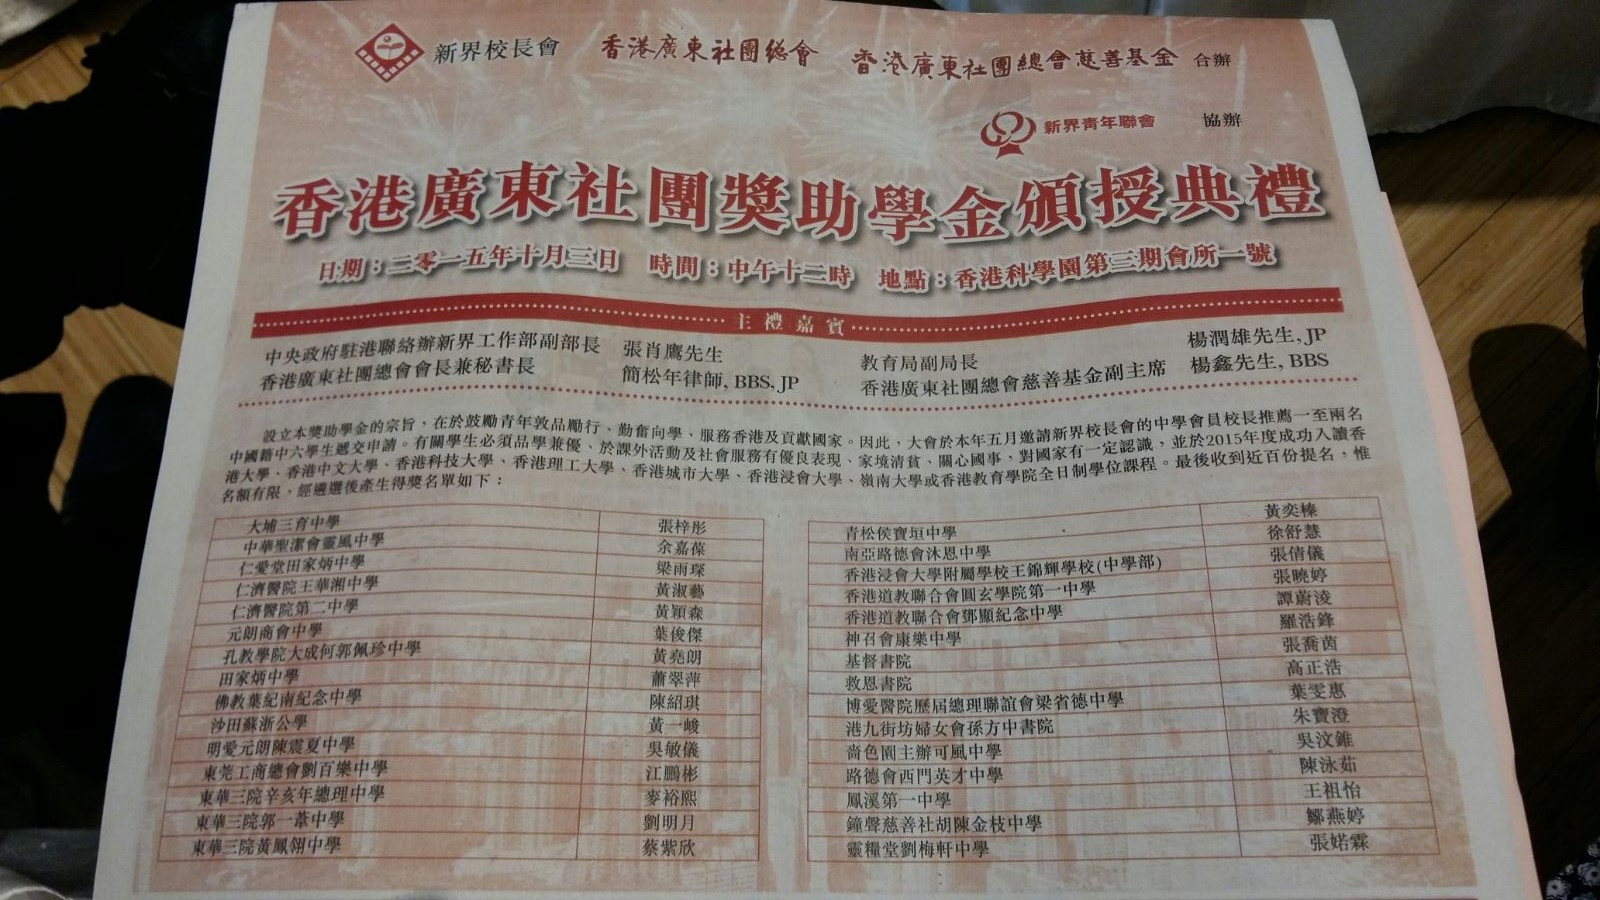 新界校長會 香港廣東社團總會 香港廣東社團總會慈善基金 合辦
新界青年聯會 協辦
香港廣東社團獎助學金頒授典禮
日期：二零一五年十月三日 時間：中午十二時 地點：香港科學園第三期會所一號
主禮嘉賓
中央政府駐港聯絡辦新界工作部副部長 張肖鷹先生 教育局副局長 楊潤雄先生, JP
香港廣東社團總會會長兼秘書長 簡松年律師, BBS, JP 香港廣東社團總會慈善基金副主席 楊鑫先生, BBS
設立本獎助學金的宗旨，在於鼓勵青年敦品勵行、勤奮向學、服務香港及貢獻國家。因此，大會於本年五月邀請新界校長會的中學會員校長推薦一至兩名
中國籍中六學生遞交申請。有關學生必須品學兼優、於課外活動及社會服務有優良表現、家境清貧、關心國事，對國家有一定認識，並於2015年度成功入讀香
港大學、香港中文大學、香港科技大學、香港理工大學、香港城市大學、香港浸會大學、嶺南大學或香港教育學院全日制學位課程。最後收到近百份提名，惟
名額有限，經遴選後產生得獎名單如下：
大埔三育中學 張梓彤
中華聖潔會靈風中學 余嘉葆
仁愛堂田家炳中學 梁雨琛
仁濟醫院王華湘中學 黃淑藝
仁濟醫院第二中學 黃穎森
元朗商會中學 葉俊傑
孔教學院大成何郭佩珍中學 黃堯朗
田家炳中學 蕭翠萍
佛教葉紀南紀念中學 陳紹琪
沙田蘇浙公學 黃一峻
明愛元朗陳震夏中學 吳敏儀
東莞工商總會劉百樂中學 江鵬彬
東華三院辛亥年總理中學 麥裕熙
東華三院郭一葦中學 劉明月
東華三院黃鳳翎中學 蔡紫欣
青松侯寶垣中學 黃奕榛
南亞路德會沐恩中學 徐舒慧
香港浸會大學附屬學校王錦輝學校(中學部) 張倩儀
香港道教聯合會圓玄學院第一中學 張曉婷
香港道教聯合會鄧顯紀念中學 譚蔚淩
神召會康樂中學 羅浩鋒
基督書院 張喬茵
救恩書院 高正浩
博愛醫院歷屆總理聯誼會梁省德中學 葉雯惠
港九街坊婦女會孫方中書院 朱寶澄
嗇色園主辦可風中學 吳汶錐
路德會西門英才中學 陳泳茹
鳳溪第一中學 王祖怡
鐘聲慈善社胡陳金枝中學 鄒燕婷
靈糧堂劉梅軒中學 張婼霖